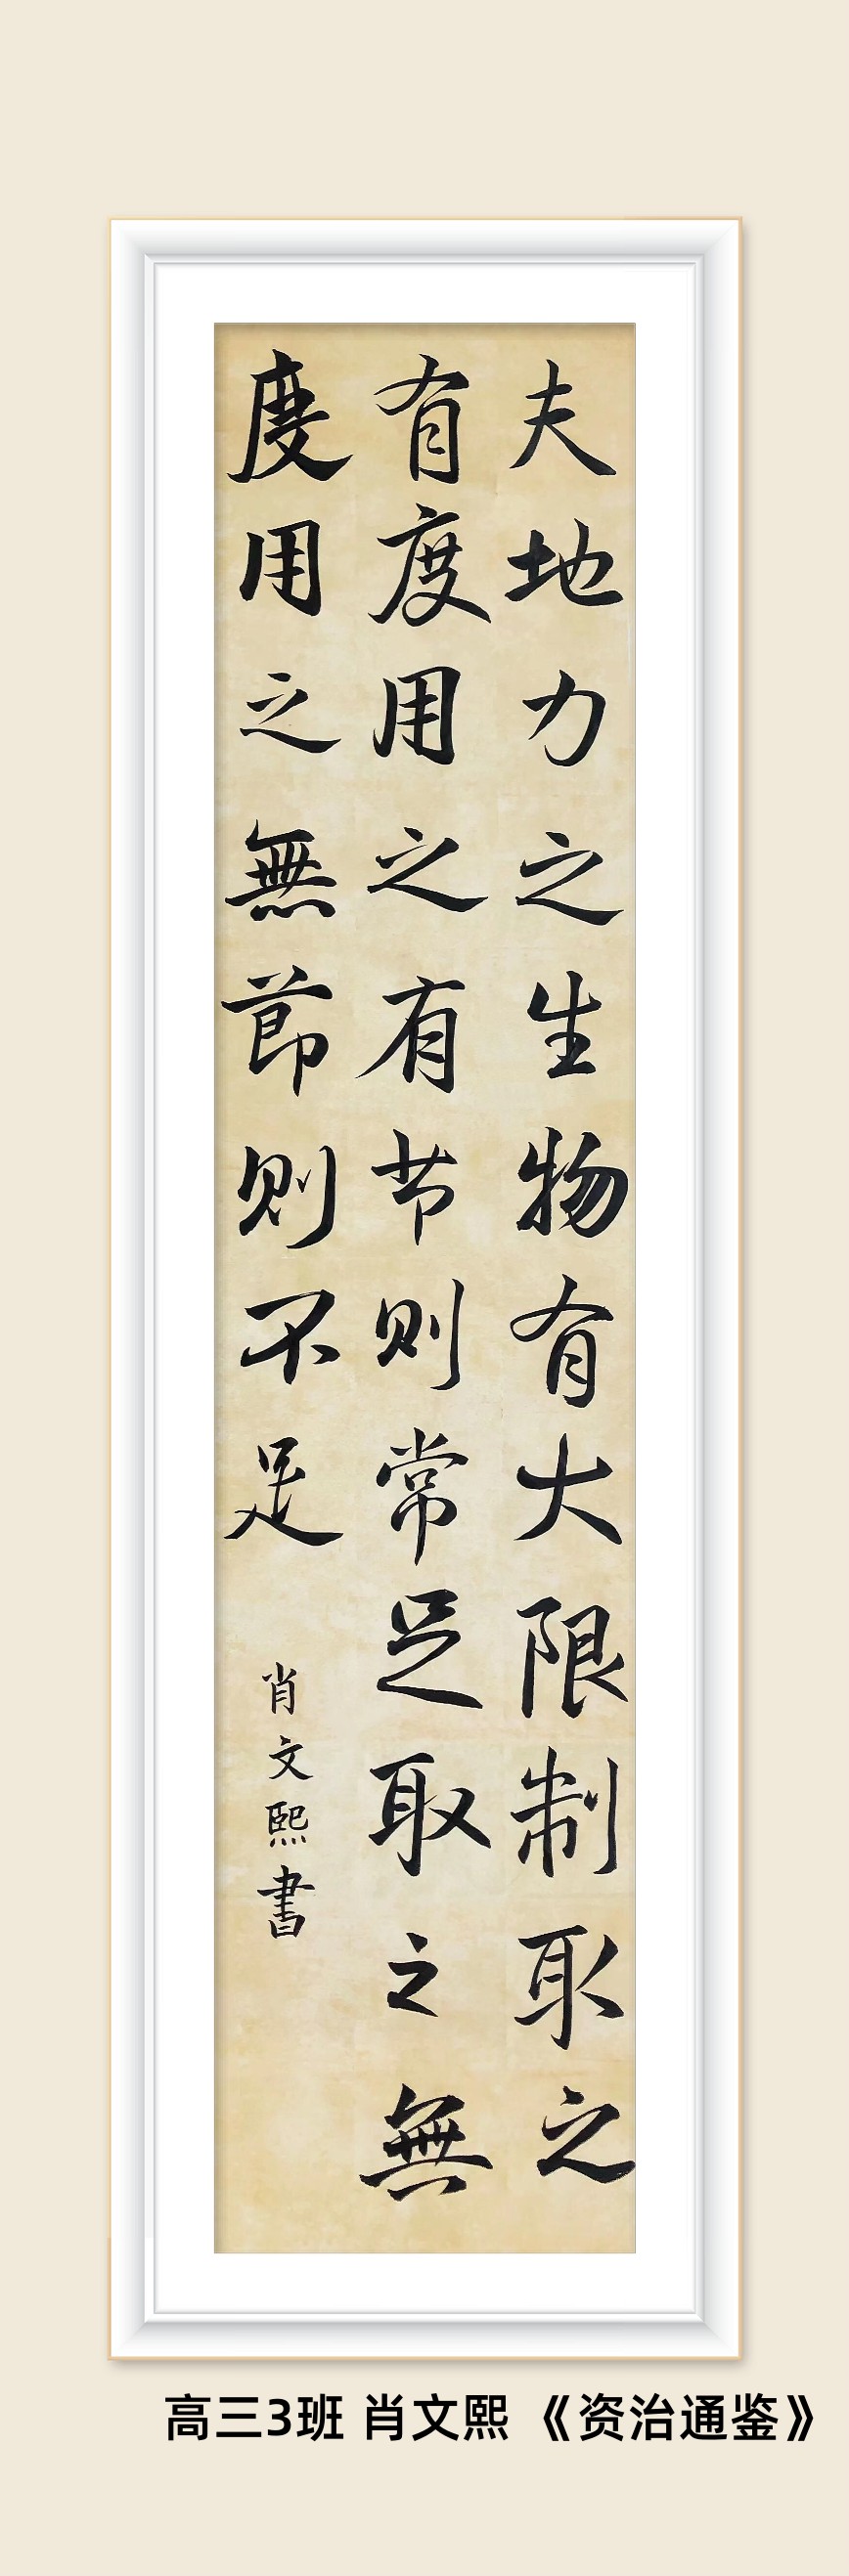 夫地力之生物有大限制取之
有度用之有节则常足取之無
度用之無節则不足
肖文熙書
高三3班 肖文熙 《资治通鉴》